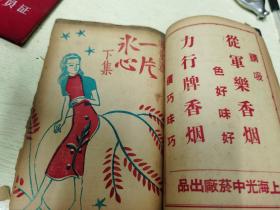 员证
一片
冰心
下集
請吸
從軍樂香烟
色好味好
力行牌香烟
價巧味巧
上海光中菸廠出品